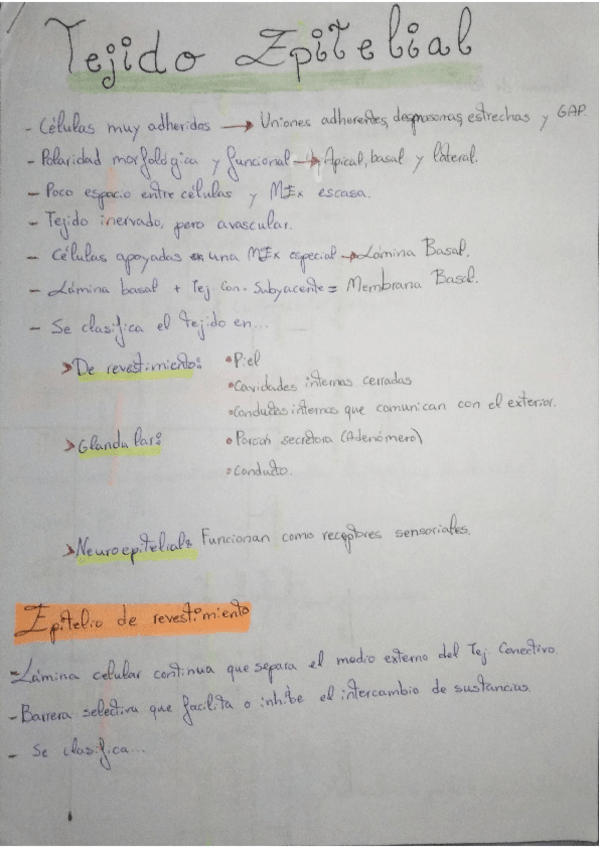 Tejido Epitelial
- Células muy adheridas → Uniones adherentes, desmosomas, estrechas y GAP.
- Polaridad morfológica y funcional → Apical, basal y lateral.
- Poco espacio entre células y MEx escasa.
- Tejido inervado, pero avascular.
- Células apoyadas en una MEx especial → Lámina Basal.
- Lámina basal + Tej. Con. Subyacente = Membrana Basal.
- Se clasifica el tejido en...
> De revestimiento: • Piel
• Cavidades internas cerradas
• Conductos internos que comunican con el exterior.
> Glandular: • Porción secretora (Adenómero)
• Conducto.
> Neuroepitelial: Funcionan como receptores sensoriales.
Epitelio de revestimiento
- Lámina celular continua que separa el medio externo del Tej. Conectivo.
- Barrera selectiva que facilita o inhibe el intercambio de sustancias.
- Se clasifica...